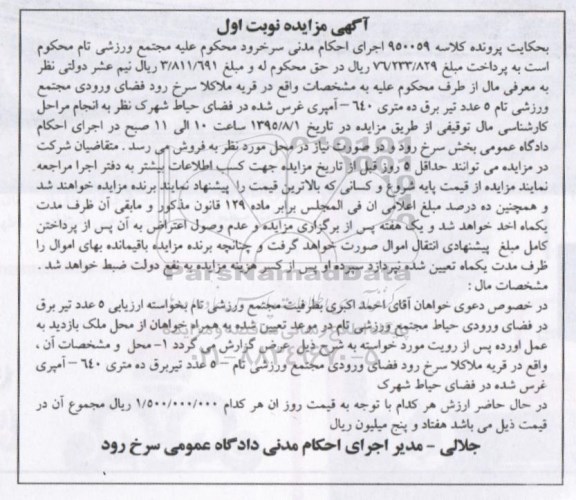 آگهی مزایده نوبت اول
بحکایت پرونده کلاسه ۹۵۰۰۵۹ اجرای احکام مدنی سرخرود محکوم علیه مجتمع ورزشی تام محکوم
است به پرداخت مبلغ ۷۶/۲۳۳/۸۲۹ ریال در حق محکوم له و مبلغ ۳/۸۱۱/۶۹۱ ریال نیم عشر دولتی نظر
به معرفی مال از طرف محکوم علیه به مشخصات واقع در قریه ملاکلا سرخ رود فضای ورودی مجتمع
ورزشی تام ۵ عدد تیر برق ده متری ۶۴۰ – آمپری غرس شده در فضای حیاط شهرک نظر به انجام مراحل
کارشناسی مال توقیفی از طریق مزایده در تاریخ ۱۳۹۵/۸/۱ ساعت ۱۰ الی ۱۱ صبح در اجرای احکام
دادگاه عمومی بخش سرخ رود و در صورت نیاز در محل مورد نظر به فروش می رسد . متقاضیان شرکت
در مزایده می توانند حداقل ۵ روز قبل از تاریخ مزایده جهت کسب اطلاعات بیشتر به دفتر اجرا مراجعه
نمایند مزایده از قیمت پایه شروع و کسانی که بالاترین قیمت را پیشنهاد نمایند برنده مزایده خواهند شد
و همچنین ده درصد مبلغ اعلامی ان فی المجلس برابر ماده ۱۲۹ قانون مذکور و مابقی آن ظرف مدت
یکماه اخذ خواهد شد و یک هفته پس از برگزاری مزایده و عدم وصول اعتراض به آن پس از پرداختن
کامل مبلغ پیشنهادی انتقال اموال صورت خواهد گرفت و چنانچه برنده مزایده باقیمانده بهای اموال را
ظرف مدت یکماه تعیین شده نپردازد سپرده او پس از کسر هزینه مزایده به نفع دولت ضبط خواهد شد .
مشخصات مال :
در خصوص دعوی خواهان آقای احمد اکبری بطرفیت مجتمع ورزشی تام بخواسته ارزیابی ۵ عدد تیر برق
در فضای ورودی حیاط مجتمع ورزشی تام در موعد تعیین شده به همراه خواهان از محل ملک بازدید به
عمل اورده پس از رویت مورد خواسته به شرح ذیل عرض گزارش می گردد ۱- محل و مشخصات آن ،
واقع در قریه ملاکلا سرخ رود فضای ورودی مجتمع ورزشی تام – ۵ عدد تیربرق ده متری ۶۴۰ – آمپری
غرس شده در فضای حیاط شهرک
در حال حاضر ارزش هر کدام با توجه به قیمت روز ان هر کدام ۱/۵۰۰/۰۰۰/۰۰۰ ریال مجموع آن در
قیمت ذیل می باشد هفتاد و پنج میلیون ریال
جلالی – مدیر اجرای احکام مدنی دادگاه عمومی سرخ رود
ParsNamadData
۰۲۱-۸۸۳۴۹۶۷۰-۵